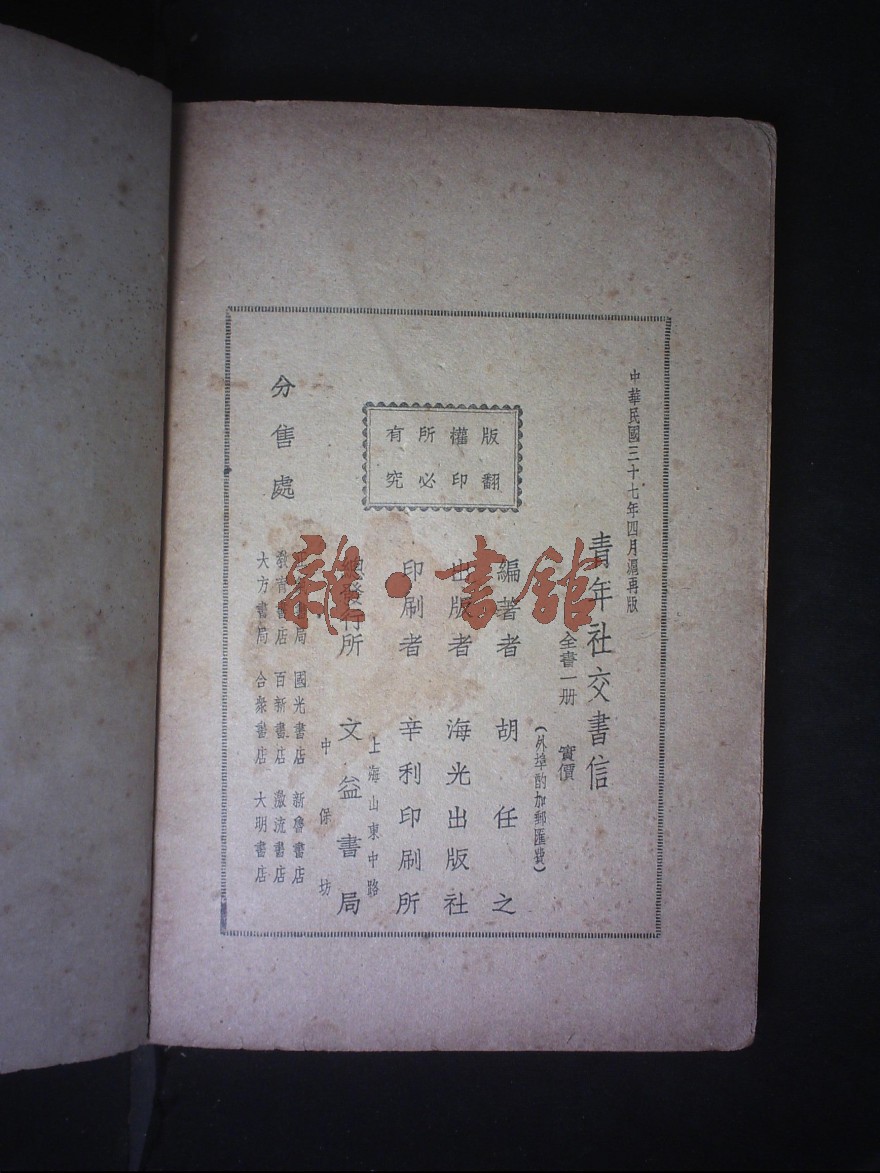 中華民國三十七年四月滬再版
青年社交書信
全書一册　實價
(外埠酌加郵匯費)
版權所有
翻印必究
編著者　胡任之
出版者　海光出版社
印刷者　辛利印刷所
總發行所　文益書局
上海山東中路
中保坊
分售處
書局　國光書店　新魯書店
教育書店　百新書店　激流書店
大方書局　合衆書店　大明書店
雜·書館